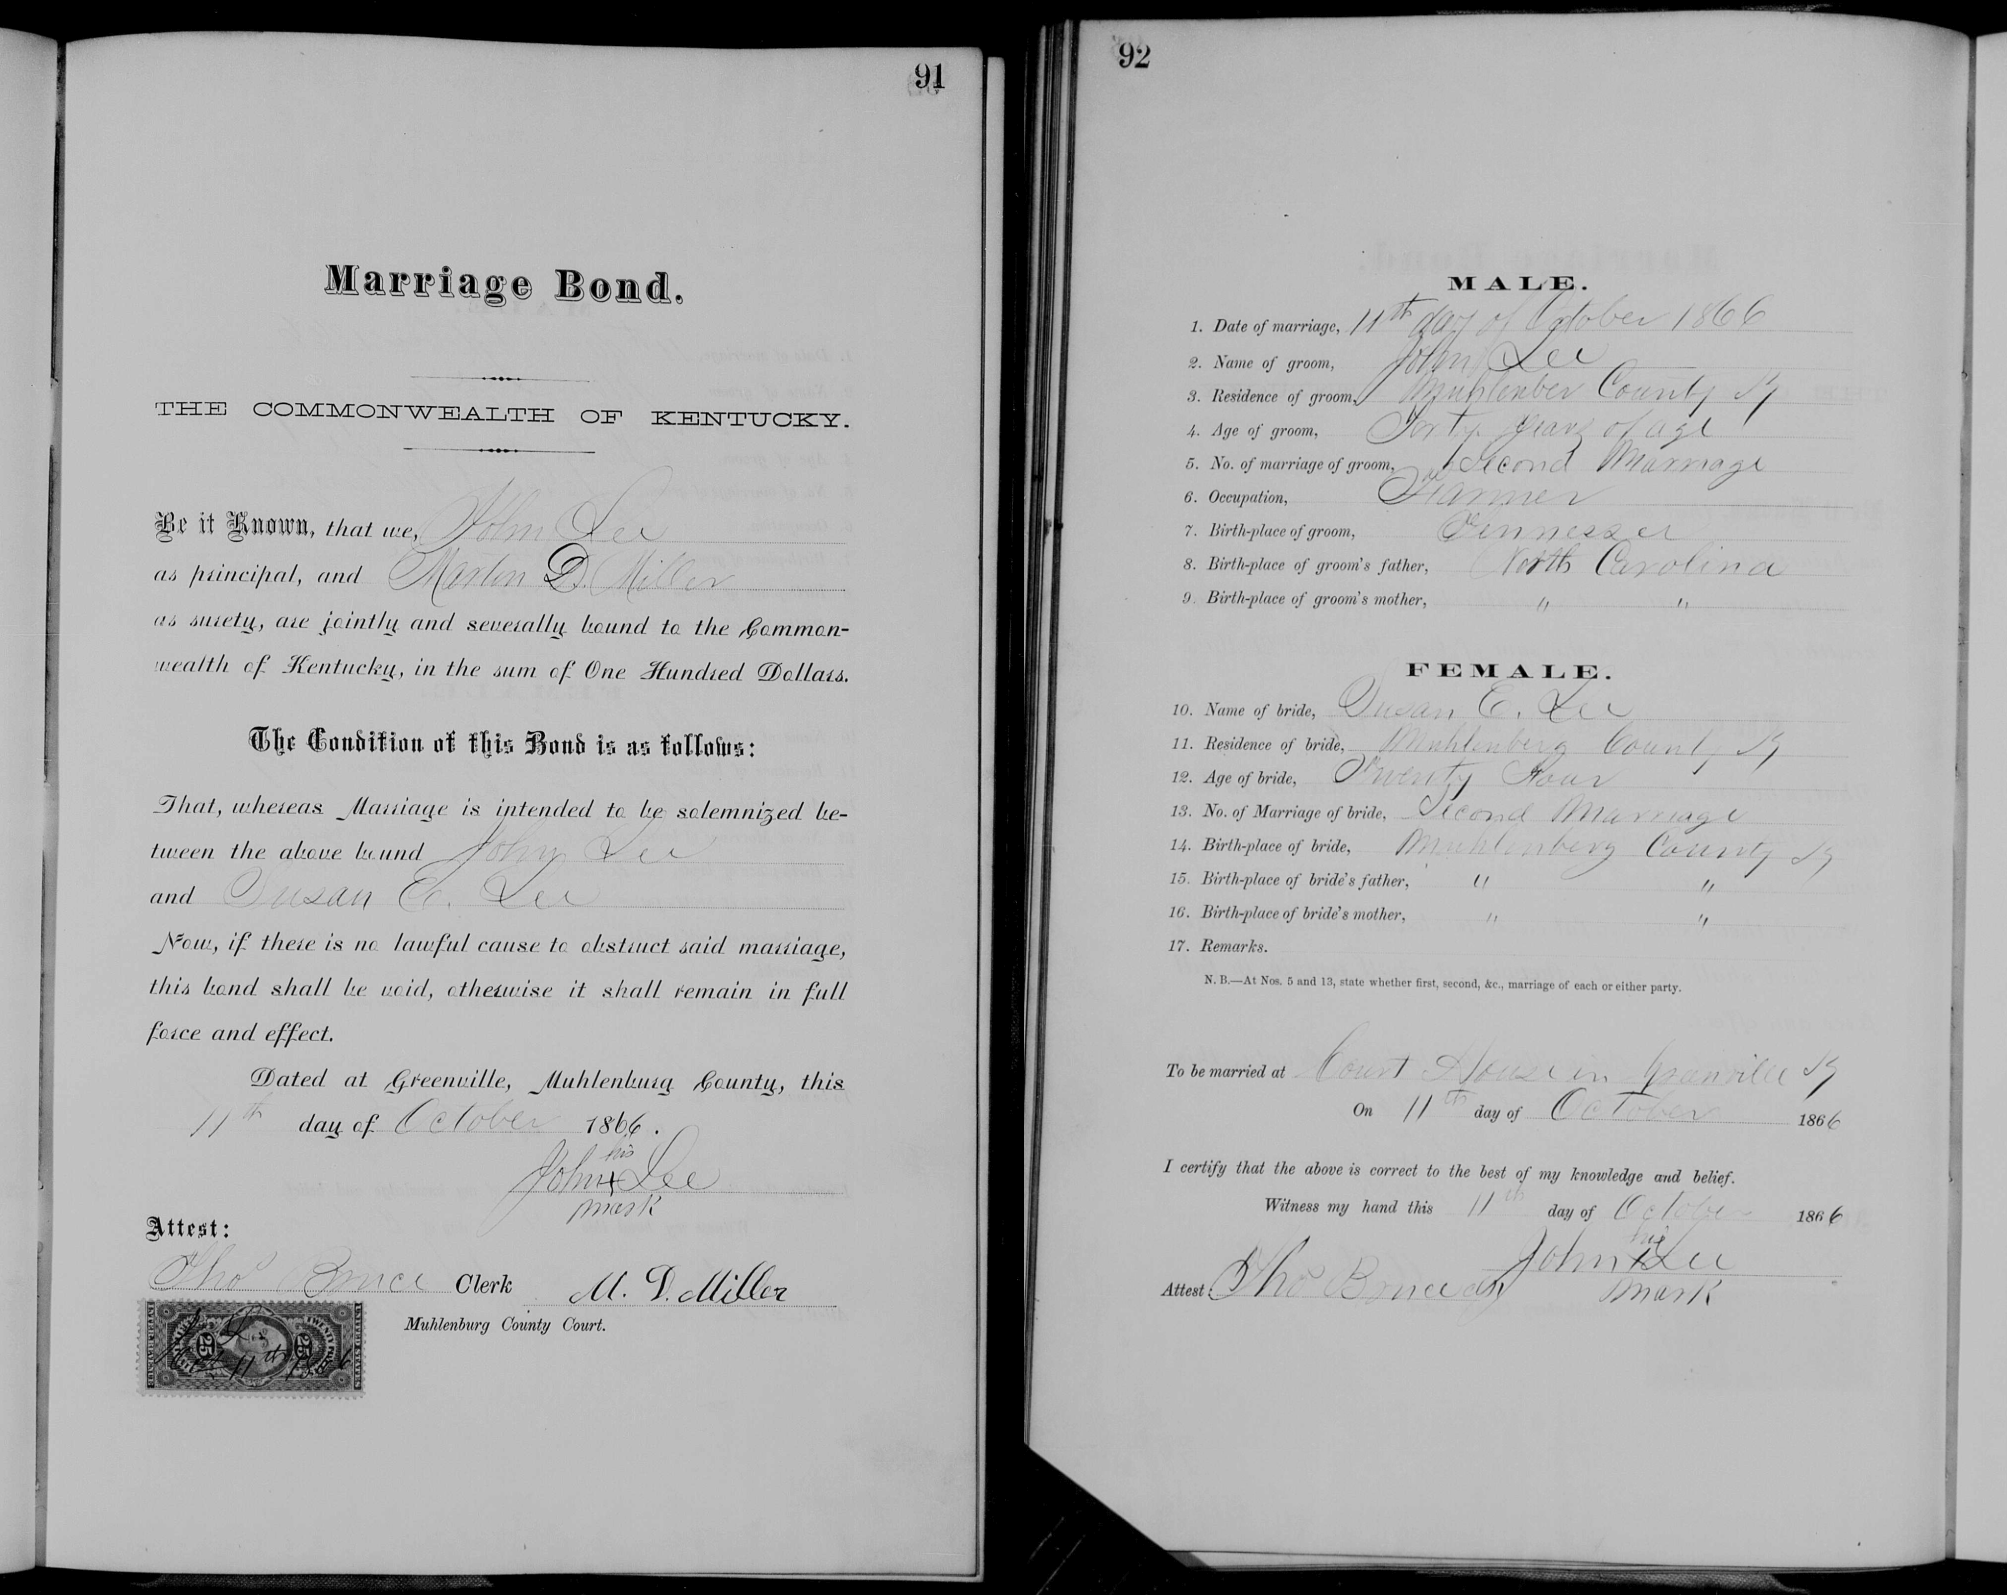 91
Marriage Bond.
THE COMMONWEALTH OF KENTUCKY.
Be it Known, that we, John Lee
as principal, and Martin D. Miller
as surety, are jointly and severally bound to the Common-
wealth of Kentucky, in the sum of One Hundred Dollars.
The Condition of this Bond is as follows:
That, whereas Marriage is intended to be solemnized be-
tween the above bound John Lee
and Susan E. Lee
Now, if there is no lawful cause to obstruct said marriage,
this bond shall be void, otherwise it shall remain in full
force and effect.
Dated at Greenville, Muhlenburg County, this
11th day of October 1866.
his
John + Lee
mark
Attest:
Thos Bruce Clerk M. D. Miller
Muhlenburg County Court.
25 25
11th 1866
92
MALE.
1. Date of marriage, 11th day of October 1866
2. Name of groom, John Lee
3. Residence of groom, Muhlenber County Ky
4. Age of groom, Forty years of age
5. No. of marriage of groom, Second Marriage
6. Occupation, Farmer
7. Birth-place of groom, Tennessee
8. Birth-place of groom's father, North Carolina
9. Birth-place of groom's mother, " "
FEMALE.
10. Name of bride, Susan E. Lee
11. Residence of bride, Muhlenberg County Ky
12. Age of bride, Twenty Four
13. No. of Marriage of bride, Second Marriage
14. Birth-place of bride, Muhlenberg County Ky
15. Birth-place of bride's father, " "
16. Birth-place of bride's mother, " "
17. Remarks.
N. B.—At Nos. 5 and 13, state whether first, second, &c., marriage of each or either party.
To be married at Court House in Greenville Ky
On 11th day of October 1866
I certify that the above is correct to the best of my knowledge and belief.
Witness my hand this 11th day of October 1866
his
John x Lee
Attest Thos Bruce clk mark